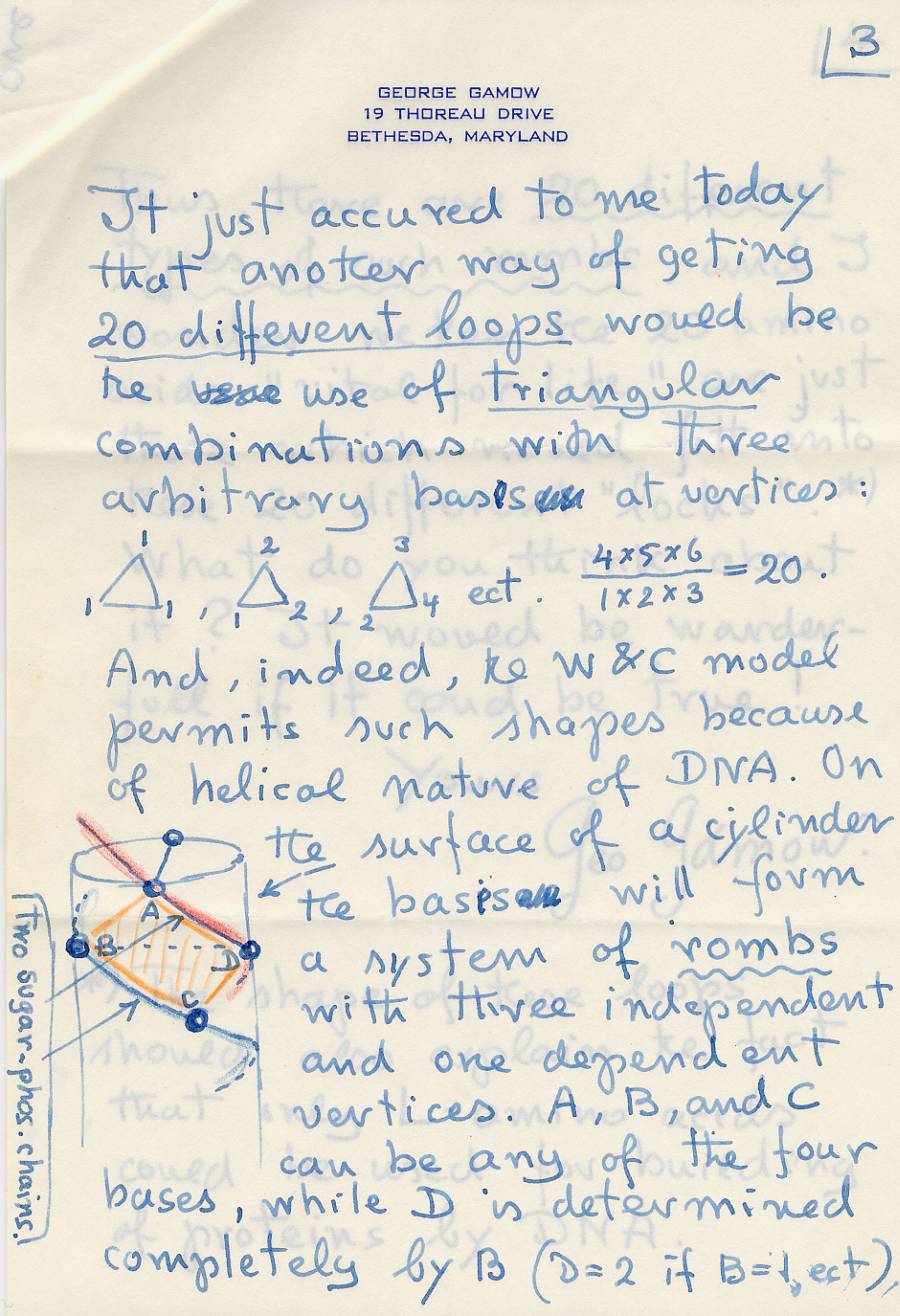 3
GEORGE GAMOW
19 THOREAU DRIVE
BETHESDA, MARYLAND
It just accured to me today
that another way of geting
20 different loops would be
the use of triangular
combinations with three
arbitrary basis at vertices:
1 1 1 , 2 1 2 , 3 2 4 ect. 4x5x6 / 1x2x3 = 20.
And, indeed, the W&C model
permits such shapes because
of helical nature of DNA. On
the surface of a cylinder
the basis will form
a system of rombs
with three independent
and one dependent
vertices. A, B, and C
can be any of the four
bases, while D is determined
completely by B (D=2 if B=1, ect),
A
B
D
C
Two sugar-phos. chains.